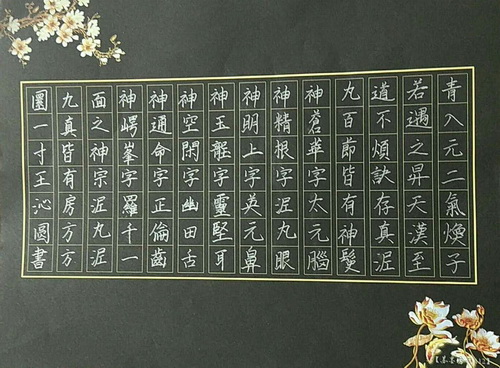 青入元二氣煥子
若遇之昇天漢至
道不煩訣存真泥
九百節皆有神髮
神蒼華字太元腦
神精根字泥丸眼
神明上字英元鼻
神玉字靈堅耳
神空閑字幽田舌
神通命字正倫齒
神崿峯字羅千一
面之神宗泥丸泥
九真皆有房方方
圓一寸王沁圓書